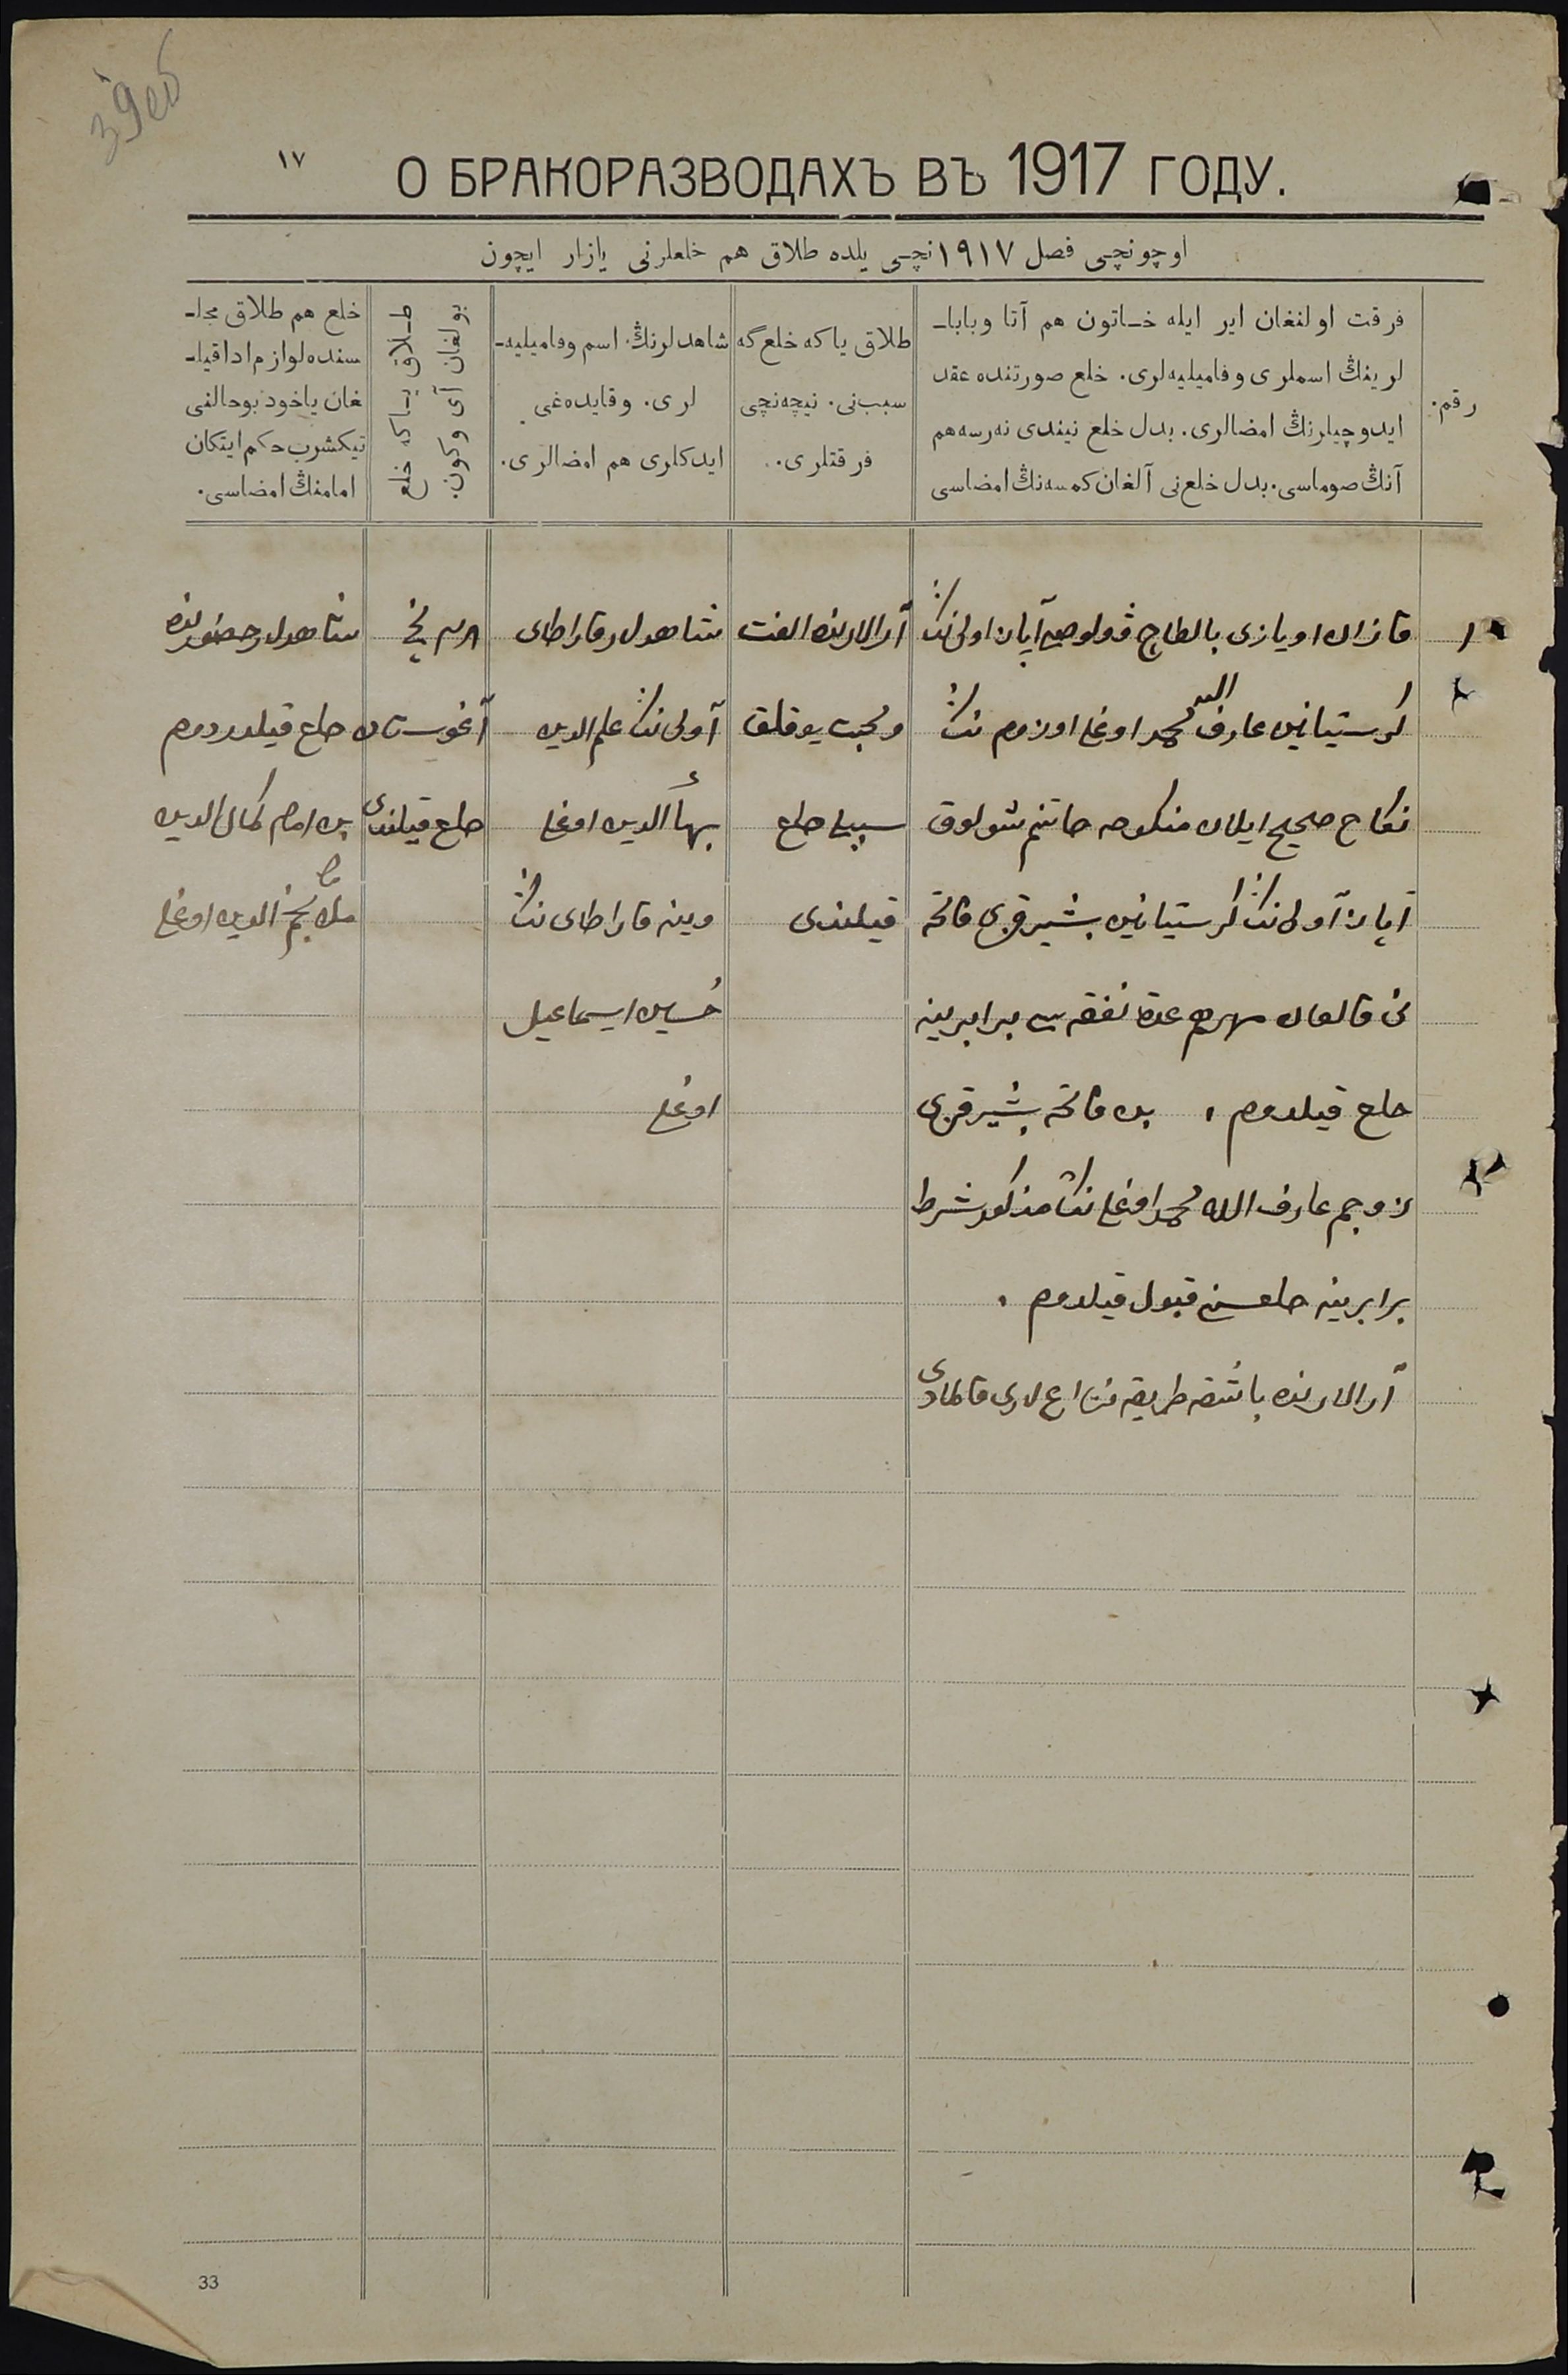 39об
١٧
О БРАКОРАЗВОДАХЪ ВЪ 1917 ГОДУ.
اوچونچی فصل ١٩١٧نچی یلده طلاق هم خلعلرنی یازار ایچون
رقم.
فرقت اولنغان ایر ایله خـاتون هم آتا وبابا‍ـ
لرینڭ اسملری وفامیلیه‌لری. خلع صورتنده عقد
ایدوچیلرنڭ امضالری. بدل خلع نیندی نه‌رسه هم
آنڭ صوماسی. بدل خلع‌نی آلغان کمسه‌نڭ امضاسی
طلاق یاکه خلع گه
سبب‌نی. نیچه‌نچی
فرقتلری.
شاهدلرنڭ اسم وفامیلیه‍ـ
لری. وقایده‌غی
ایدکلری هم امضالری.
طـلاق یـاکه خلع
بولغان آی وکون.
خلع هم طلاق مجلـ
سنده لوازم ادا قیلـ
غان یاخود بوحالنی
تیکشرب حکم ایتکان
امامنڭ امضاسی.
١
قازان اویازی بالطاچ ڤولوصی آپان اولی‌نڭ
کرستیانین عارف الله محمد اوغلی اوزوم نڭ
نکاح صحیح ایلان منکوحه خاتنم شولوق
آپان آولی‌نڭ کرستیانین بشیر قزی فاتحه
نی قالغان مهرم عدة نفقه سی برابرینه
خلع قیلدوم . بن فاتحه بشیر قزی
زوجم عارف الله محمد اوغلی نڭ مذکور شرط
برابرینه خلعسنی قبول قیلدوم .
آرالارنده باشقه طریقه نزاع لاری قالمادی
آرالارنده الفت
ومحبت یوقلق
سببلی خلع
قیلندی
شاهدلر قاراطای
آولی‌نڭ علم الدین
بهاء الدین اوغلی
وینه قاراطای نڭ
حسین اسماعیل
اوغلی
نچی
آغوستده
خلع قیلندی
شاهدلر حضورنده
خلع قیلدردوم
بن امام کمال الدین
ملا نجم الدین اوغلی
33